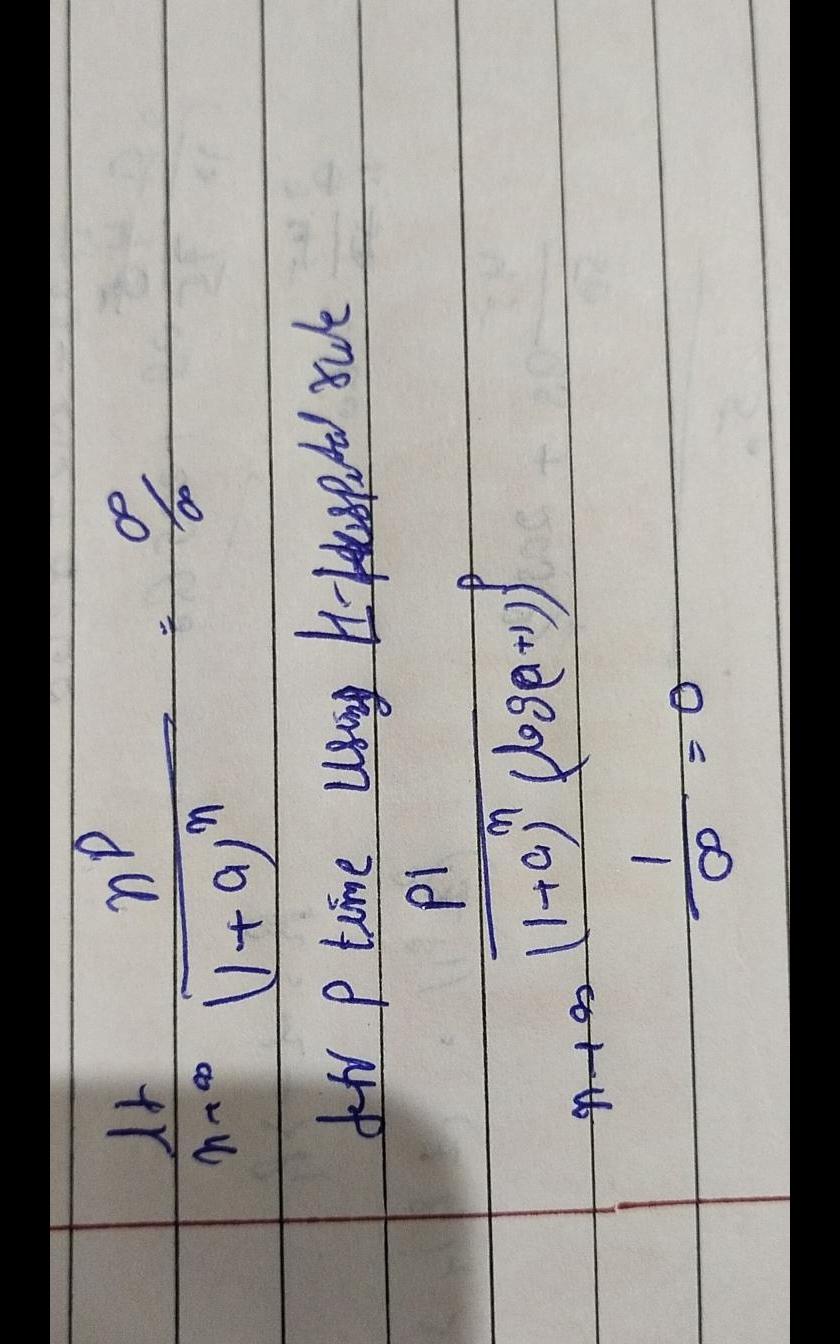 lt n→∞ n^p / (1+a)^n = ∞/∞
diff p time using H-Hospital rule
n→∞ p! / (1+a)^n (log(a+1))^p
1/∞ = 0